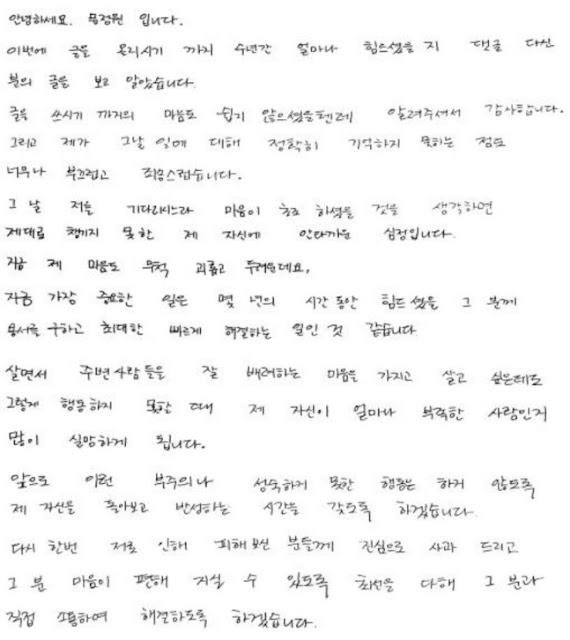 안녕하세요. 윤정원 입니다.
이번에 글을 올리시기 까지 수년간 얼마나 힘드셨을 지 댓글 다신
분의 글을 보고 알았습니다.
글을 쓰시기 까지의 마음도 쉽지 않으셨을텐데 알려주셔서 감사합니다.
그리고 제가 그날 일에 대해 정확히 기억하지 못하는 점도
너무나 부끄럽고 죄송스럽습니다.
그 날 저를 기다리시느라 마음이 초조 하셨을 것을 생각하면
제대로 챙기지 못한 제 자신에 안타까운 심정입니다.
지금 제 마음도 무척 괴롭고 두려운데요,
지금 가장 중요한 일은 몇 년의 시간 동안 힘드셨을 그 분께
용서를 구하고 최대한 빠르게 해결하는 일인 것 같습니다
살면서 주변 사람들을 잘 배려하는 마음을 가지고 살고 싶은데도
그렇게 행동하지 못한 때 제 자신이 얼마나 부족한 사람인지
많이 실망하게 됩니다.
앞으로 이런 부주의나 성숙하지 못한 행동은 하지 않도록
제 자신을 돌아보고 반성하는 시간을 갖도록 하겠습니다.
다시 한번 저로 인해 피해 보신 분들께 진심으로 사과 드리고
그 분 마음이 편해 지실 수 있도록 최선을 다해 그 분과
직접 소통하여 해결하도록 하겠습니다.